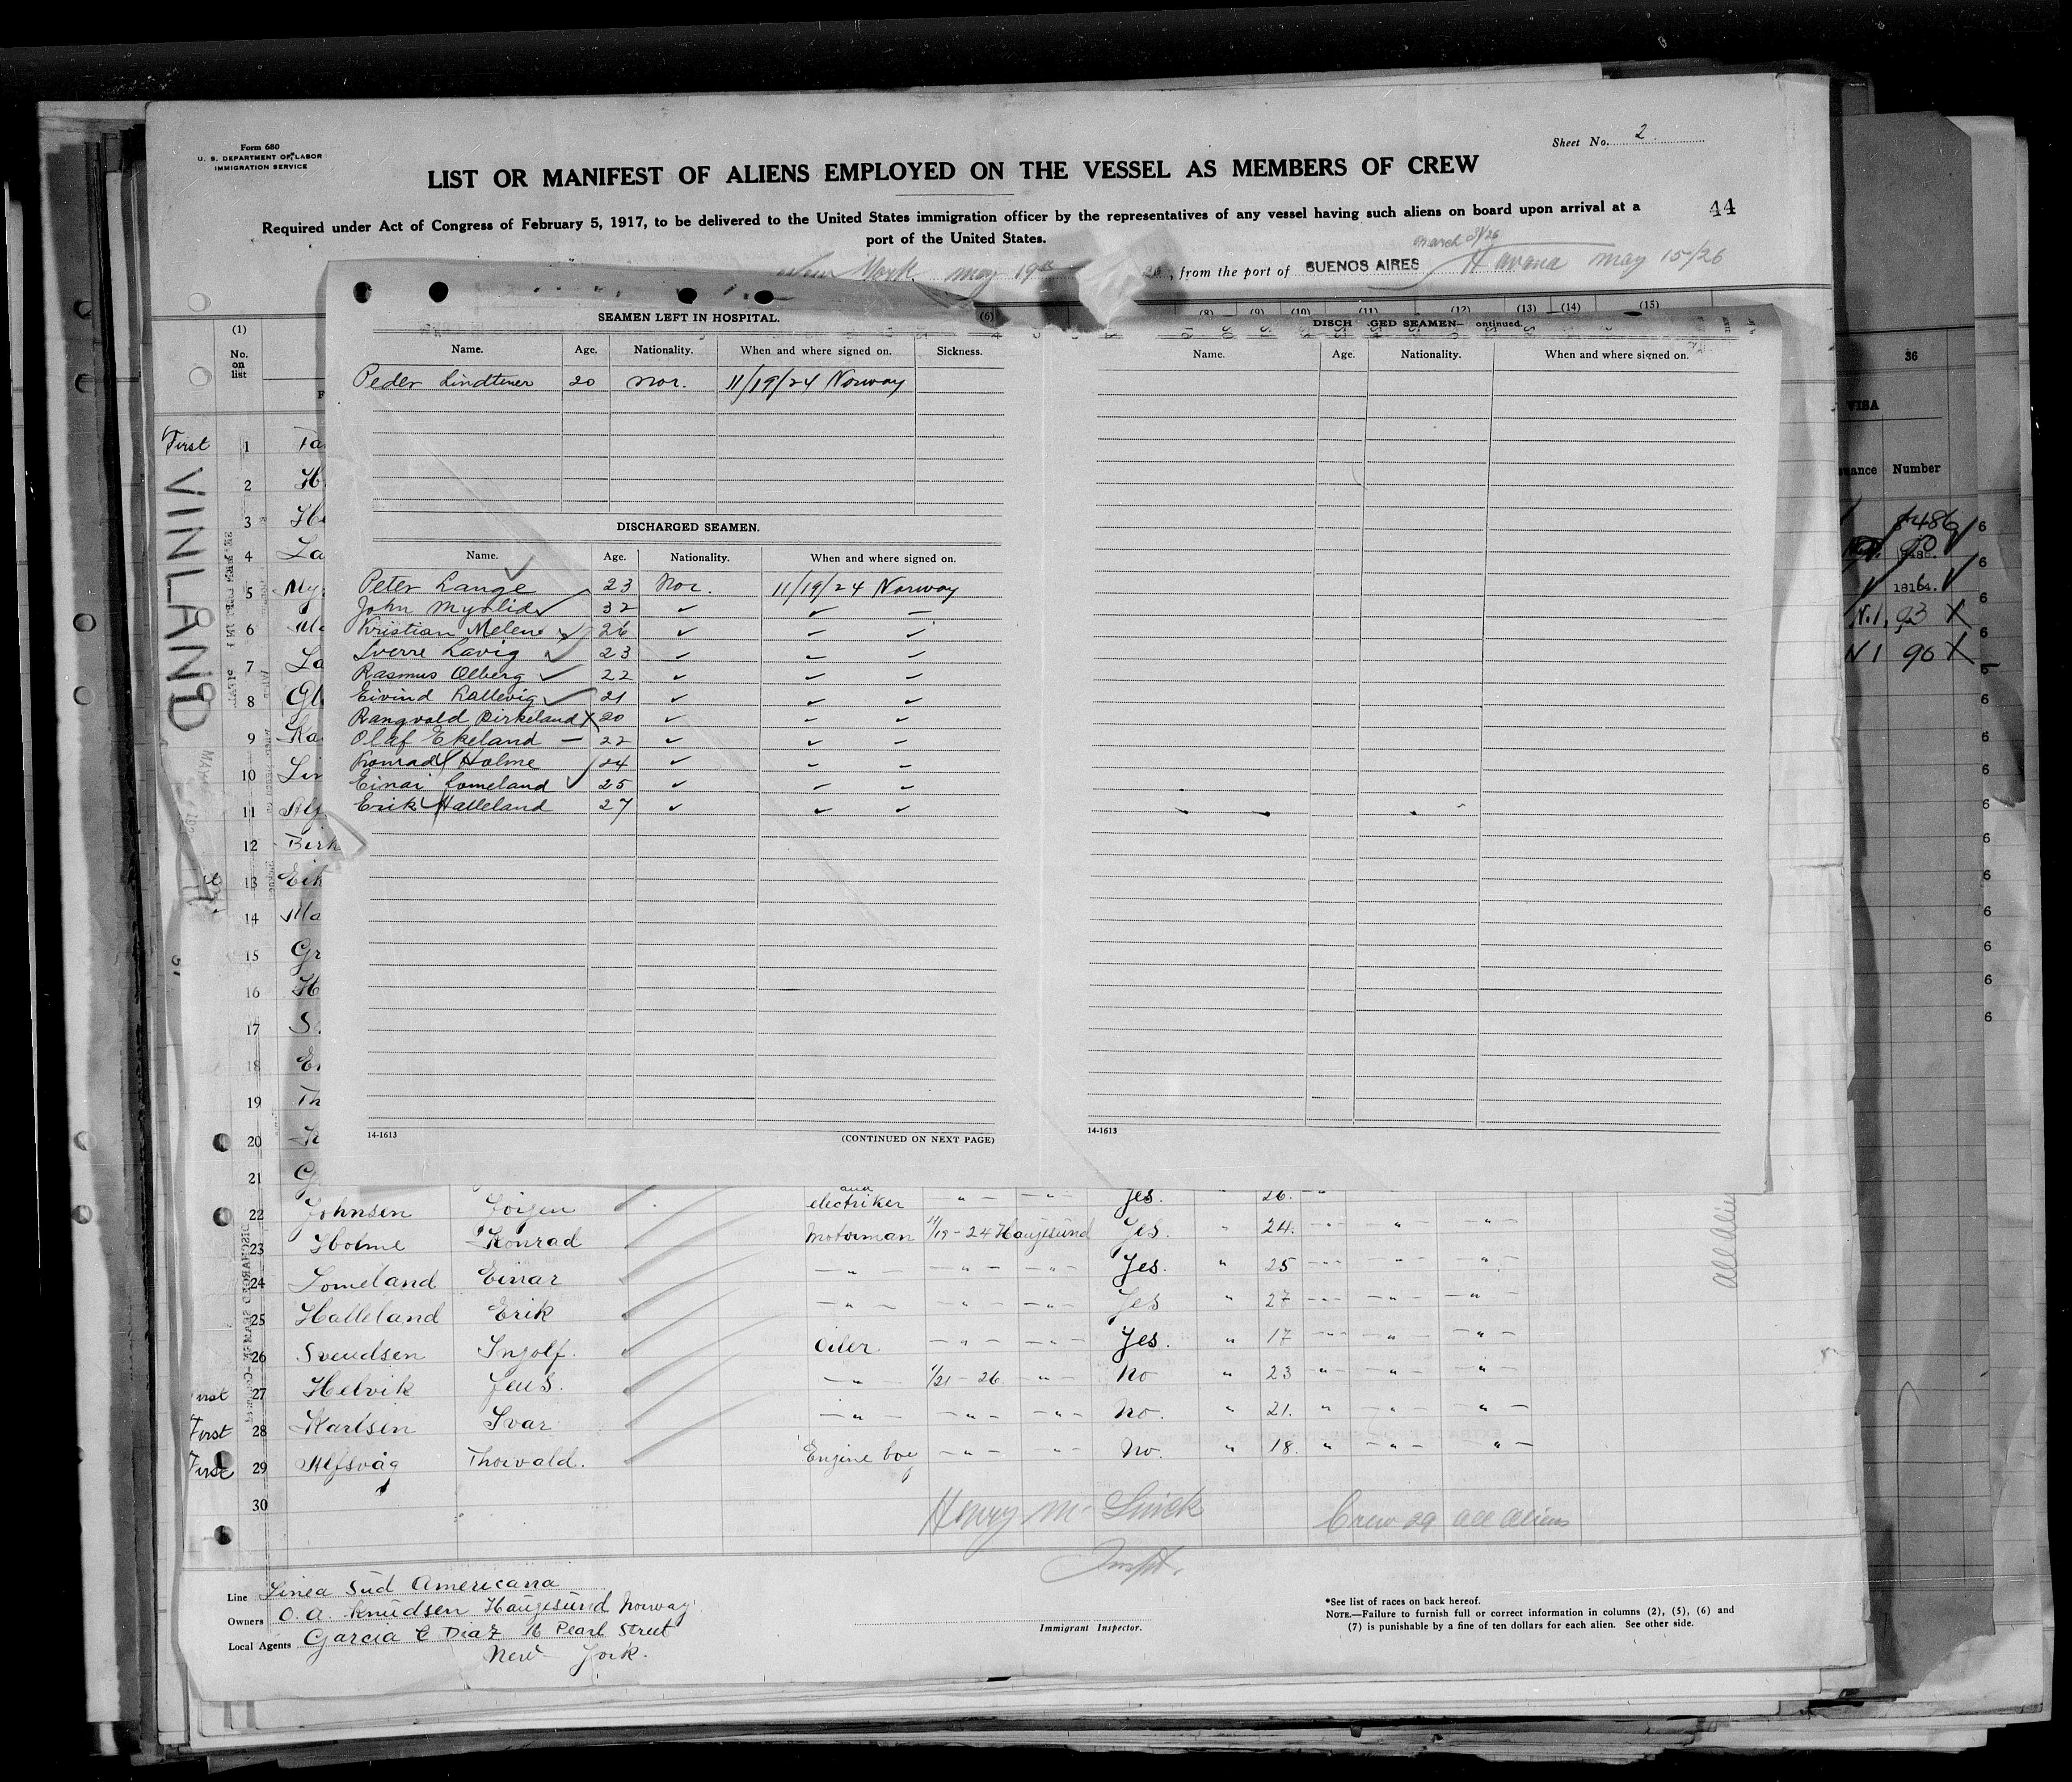 Form 680
U. S. DEPARTMENT OF LABOR
IMMIGRATION SERVICE
Sheet No. 2
LIST OR MANIFEST OF ALIENS EMPLOYED ON THE VESSEL AS MEMBERS OF CREW
44
Required under Act of Congress of February 5, 1917, to be delivered to the United States immigration officer by the representatives of any vessel having such aliens on board upon arrival at a
port of the United States.
New York May 19th 26, from the port of BUENOS AIRES Havana May 15-/26
(1) (6) (8) (9) (10) (11) (12) (13) (14) (15)
No. on list
VINLAND
SEAMEN LEFT IN HOSPITAL.
Name. Age. Nationality. When and where signed on. Sickness.
Peder Lindtner 20 Nor. 11/19/24 Norway
DISCHARGED SEAMEN.
Name. Age. Nationality. When and where signed on.
Peter Lange 23 Nor. 11/19/24 Norway
John Myhlid 32
Kristian Melene 26
Sverre Lavig 23
Rasmus Olberg 22
Eivind Lallevig 21
Rangvald Birkeland 20
Olaf Ekeland 22
Konrad Holme 24
Einar Lomeland 25
Erik Halleland 27
14-1613 (CONTINUED ON NEXT PAGE)
DISCH GED SEAMEN— ontinued.
Name. Age. Nationality. When and where signed on.
14-1613
First 1 Ta
2 H
3 Ho
4 La
5 My
6 Me
7 La
8 Gl
9 Ka
10 Lin
11 Alf
12 Birk
13 Eik
14 Ma
15 Gr
16 H
17 S
18 E
19 Th
20
21 G
36
VISA
uance Number
8486
90
18164.
N.1. 93 X
N 1 90 X
and
22 Johnsen Jörgen electriker - " - - " - Yes. " 26.
23 Holme Konrad Motorman 11/19-24 Haugesund Yes. " 24. - " -
24 Lomeland Einar - " - - " - Yes. " 25 - " -
25 Halleland Erik - " - - " - Yes " 27 - " -
26 Svendsen Ingolf. Oiler - " - - " - Yes. " 17 - " -
First 27 Helvik Jens. - " - 1/21-26 - " - No " 23 " - " -
First 28 Karlsen Ivar - " - - " - No. " 21. " - " -
First 29 Alfsvåg Thorvald. Engine boy - " - - " - No. " 18. " - " -
30
Crew 29 all aliens
Inspt.
Line Linea Sud Americana
Owners O. A. Knudsen Haugesund Norway
Local Agents Garcia & Diaz 16 Pearl Street
New York.
Immigrant Inspector.
*See list of races on back hereof.
NOTE.—Failure to furnish full or correct information in columns (2), (5), (6) and
(7) is punishable by a fine of ten dollars for each alien. See other side.